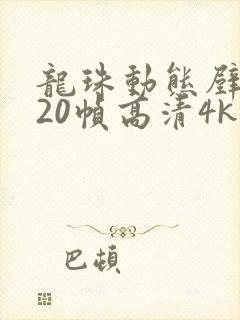 龍珠動態壁
20幀高清4k
巴頓